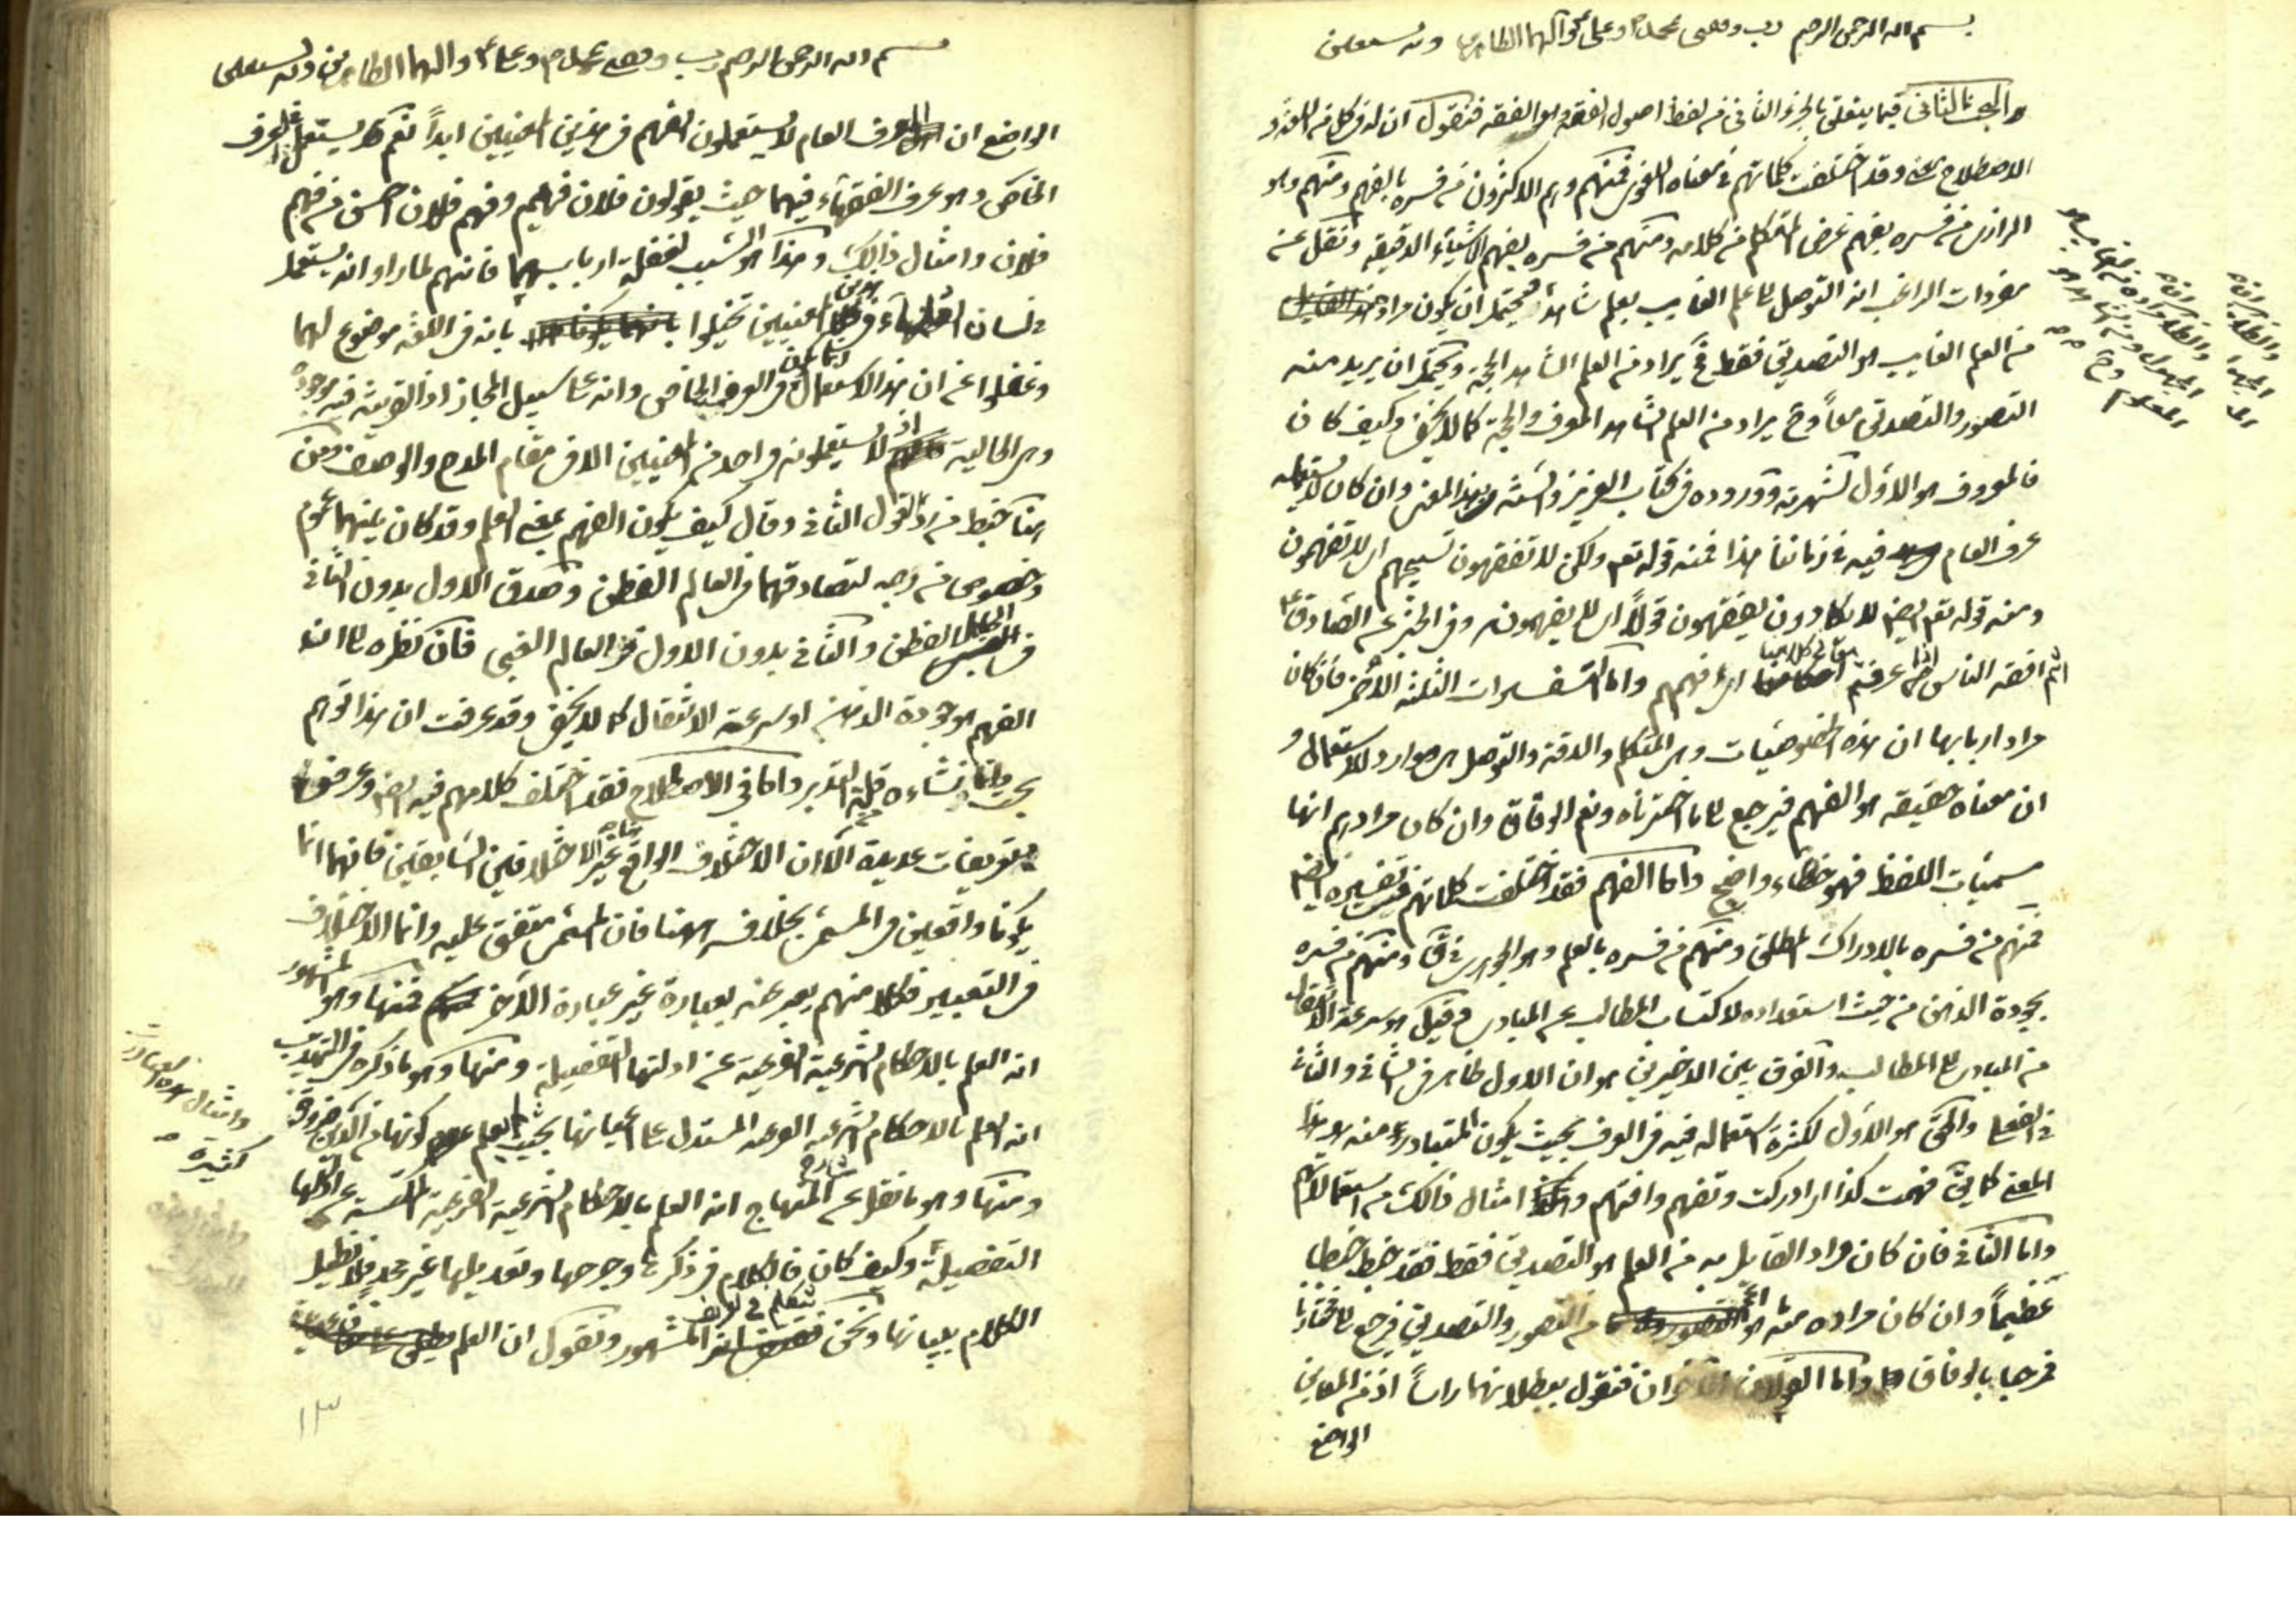 بسم الله الرحمن الرحيم رب وفقني بمحمد وعلي وآلهما الطاهرين وبه نستعين
والبحث الثاني فيما يتعلق بالجزء الثاني من لفظ اصول الفقه وهو الفقه فنقول ان له في كل من اللغة و
الاصطلاح معنى وقد اختلفت كلماتهم في معناه اللغوي فمنهم وهم الاكثرون من فسره بالفهم ومنهم وهو
الرازي من فسره بفهم غرض المتكلم من كلامه ومنهم من فسره بفهم الاشياء الدقيقة ونقل عن
مفردات الراغب انه التوصل الى علم الغايب بعلم شاهد فيحتمل ان يكون مراده
من العلم الغايب هو التصديق فقط فح يراد من العلم الشاهد الحجة ويحتمل ان يريد منه
التصور والتصديق معاً وح يراد من العلم الشاهد المعرف والحجة كما لا يخفى وكيف كان
فالمعروف هو الاول لشهرته ووروده في كتاب العزيز والسنة بهذا المعنى وان كان لا يستعمله
عرف العام فيه في زماننا هذا فمنه قوله تعم ولكن لا تفقهون تسبيحهم اي لا تفهمون
ومنه قوله تعم ايضا لا يكادون يفقهون قولاً اي لا يفهمون وفي الخبر عن الصادق ع
انتم افقه الناس اذا عرفتم معاني كلامنا اي افهمهم واما التفسيرات الثلثة الأخر فان كان
مراد اربابها ان هذه الخصوصيات وهي المتكلم والدقة والتوصل هي موارد الاستعمال و
ان معناه حقيقة هو الفهم فيرجع الى ما اخترناه ونعم الوفاق وان كان مرادهم انها
مسميات اللفظ فهو خطاء واضح واما الفهم فقد اختلفت كلماتهم في تفسيره ايضا
فمنهم من فسره بالادراك المطلق ومنهم من فسره بالعلم وهو الجوهري في ق ومنهم من فسره
بجودة الذهن من حيث استعداده لاكتساب المطالب عن المبادي وقيل هو سرعة الانتقال
من المبادي الى المطالب والفرق بين الاخيرين هو ان الاول ظاهر في الشاني والثاني
في الفعلي والحق هو الاول لكثرة استعماله فيه في العرف بحيث يكون المتبادر منه هو هذا
المعنى كما يق فهمت كذا اي ادركت وتفهم وافهم و امثال ذالك من استعمالاتهم
واما الثاني فان كان مراد القايل به من العلم هو التصديق فقط فقد خبط خبطا
عظيماً وان كان مراده منه هو الاعم من التصور والتصديق فيرجع الى مختارنا
فمرحبا بالوفاق واما القولان الاخيران فنقول ببطلانهما راساً اذ من المعاين
الواضح
بسم الله الرحمن الرحيم رب وفقني بمحمد وعلي وآلهما الطاهرين وبه نستعين
الواضح ان العرف العام لا يستعملون الفهم في هذين المعنيين ابداً نعم يستعمل العرف
الخاص وهو عرف الفقهاء فيهما حيث يقولون فلان فهيم وفهم فلان احسن من فهم
فلان وامثال ذالك وهذا هو السبب لغفلة اربابهما فانهم لما راوا انه يستعمل
في لسان الفقهاء في هذين المعنيين تخيلوا بانه في اللغة موضوع لهما
وغفلوا عن ان هذا الاستعمال انما هو في العرف الخاص وانه على سبيل المجاز اذ القرينة فيه موجودة
وهي الحالية اذ لا يستعملونه في واحد من المعنيين الا في مقام المدح والوصف ومن
هنا خبط من رد القول الثاني وقال كيف يكون الفهم بمعنى العلم وقد كان بينهما عموم
وخصوص من وجه لتصادقهما في العالم الفطن وصدق الاول بدون الثاني
في الجاهل الفطن والثاني بدون الاول في العالم الغبي فان نظره الى ان
الفهم هو جودة الذهن او سرعة الانتقال كما لا يخفى وقد عرفت ان هذا توهم
بحت وانما نشاءه قلة التدبر واما في الاصطلاح فقد اختلف كلامهم فيه ايضا وعرفوه
بتعريفات عديدة الا ان الاختلاف الواقع هنا غير الاختلافين السابقين فانهما انما
يكونا واقعين في المسمى بخلافه هاهنا فان المسمى متفق عليه وانما الاختلاف
في التعبير فكل منهم يعبر عنه بعبارة غير عبارة الآخر فمنها وهو المشهور
انه العلم بالاحكام الشرعية الفرعية عن ادلتها التفصيلية ومنها وهو ما ذكره في التهذيب
انه العلم بالاحكام الشرعية الفرعية المستدل على اعيانها بحيث لا يعلم كونها من الدين ضرورة
ومنها وهو ما نقل عن شارح المنهاج انه العلم بالاحكام الشرعية الفرعية المكتسبة عن ادلتها
التفصيلية وكيف كان فالكلام في ذكرها وجرحها وتعديلها غير مجد فلا نطيل
الكلام ببيانها ونحن نتكلم في تعريف المشهور ونقول ان العلم
وامثال هذه العبارات
كثيرة
١٣